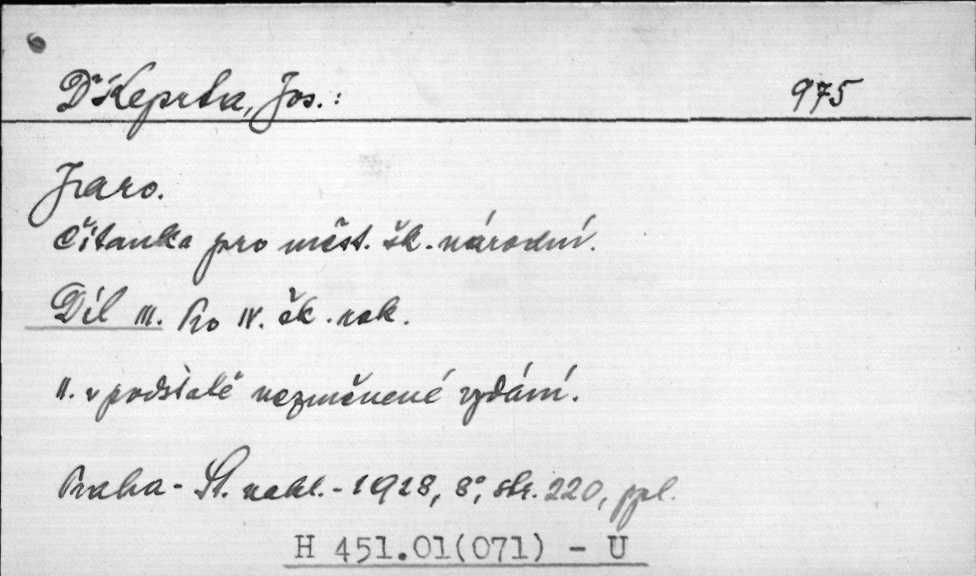 Dr Keprta, Jos.: 975
Jaro.
Čítanka pro měst. šk. národní.
Díl III. Pro IV. šk. rok.
II. v podstatě nezměněné vydání.
Praha - St. nakl. - 1928, 8°, str. 220, ppl.
H 451.01(071) - U